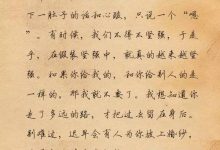 下一肚子的话和心眼，只说一个“嗯
”。有时候，我们不得不坚强，于是
乎，在假装坚强中，就真的越来越坚
强。如果你给我的，和你给别人的是
一样的，那我就不要了。我想知道你
走了多远的路，才把过去留在身后。
别难过，这年会有人为你披上婚纱，